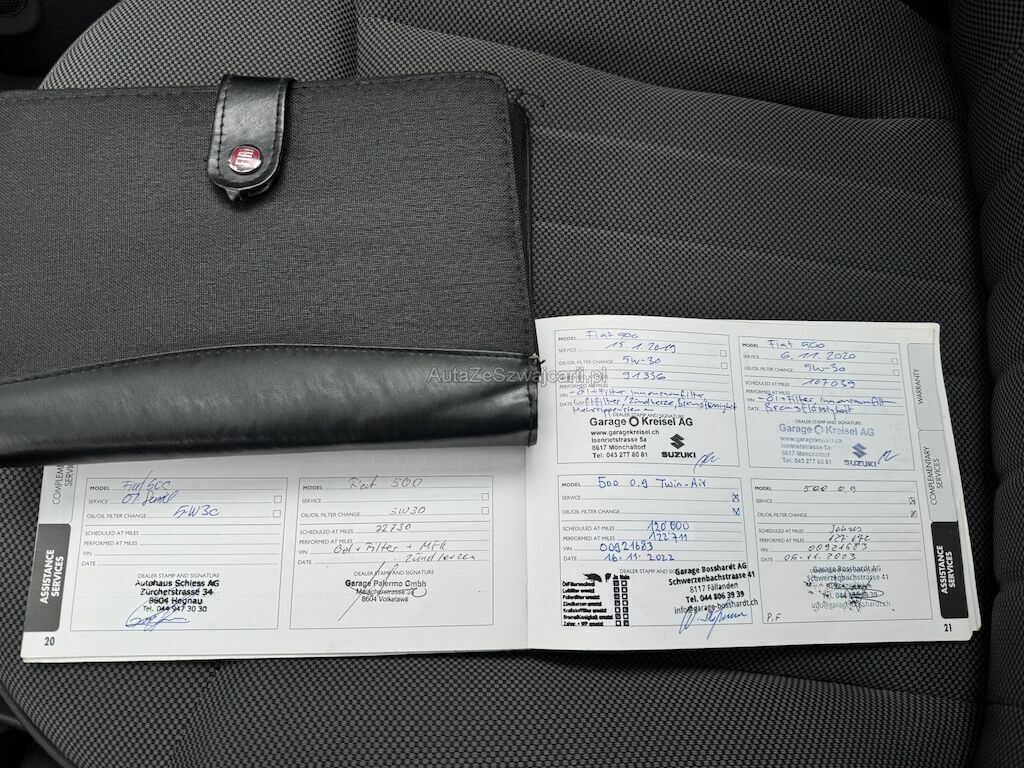 FIAT
AutaZeSzwajcarii.pl
COMPLEMENTARY
SERVICES
ASSISTANCE
SERVICES
20
MODEL
SERVICE
OIL/OIL FILTER CHANGE 5W30
SCHEDULED AT MILES
PERFORMED AT MILES
VIN
DATE
DEALER STAMP AND SIGNATURE
Autohaus Schiess AG
Zürcherstrasse 34
8604 Hegnau
Tel. 044 947 30 30
MODEL Fiat 500
SERVICE
OIL/OIL FILTER CHANGE 5W30
SCHEDULED AT MILES
PERFORMED AT MILES
VIN Oel + Filter + MFK
DATE Zündkerzen
DEALER STAMP AND SIGNATURE
Garage Palermo Gmbh
8604 Volketswil
MODEL Fiat 500
SERVICE 15.1.2019
OIL/OIL FILTER CHANGE 5W-30
SCHEDULED AT MILES 91336
PERFORMED AT MILES
VIN Öl + Filter, Innenraumfilter,
DATE Luftfilter, Zündkerze, Bremsflüssigkeit
DEALER STAMP AND SIGNATURE
Garage Kreisel AG
www.garagekreisel.ch
Isenrietstrasse 5a
8617 Mönchaltorf
Tel: 043 277 80 81
SUZUKI
MODEL Fiat 500
SERVICE 6.11.2020
OIL/OIL FILTER CHANGE 5W-30
SCHEDULED AT MILES 107039
PERFORMED AT MILES
VIN Öl + Filter, Innenraumfilt
DATE Bremsflüssigkeit
DEALER STAMP AND SIGNATURE
Garage Kreisel AG
www.garagekreisel.ch
Isenrietstrasse 5a
8617 Mönchaltorf
Tel: 043 277 80 81
SUZUKI
MODEL 500 0.9 Twin-Air
SERVICE
OIL/OIL FILTER CHANGE
SCHEDULED AT MILES 120000
PERFORMED AT MILES 122711
VIN 00921683
DATE 16.11.2022
DEALER STAMP AND SIGNATURE
Ja Nein
Oel+Filter ersetzt
Luftfilter ersetzt
Pollenfilter ersetzt
Zündkerzen ersetzt
Kraftstofffilter ersetzt
Bremsflüssigkeit ersetzt
Garage Bosshardt AG
Schwerzenbachstrasse 41
8117 Fällanden
Tel. 044 806 39 39
info@garage-bosshardt.ch
MODEL 500 0.9
SERVICE
OIL/OIL FILTER CHANGE
SCHEDULED AT MILES Jahres
PERFORMED AT MILES
VIN 00921683
DATE 06.11.2023
DEALER STAMP AND SIGNATURE
Garage Bosshardt AG
Schwerzenbachstrasse 41
P.F
WARRANTY
COMPLEMENTARY
SERVICES
ASSISTANCE
SERVICES
21